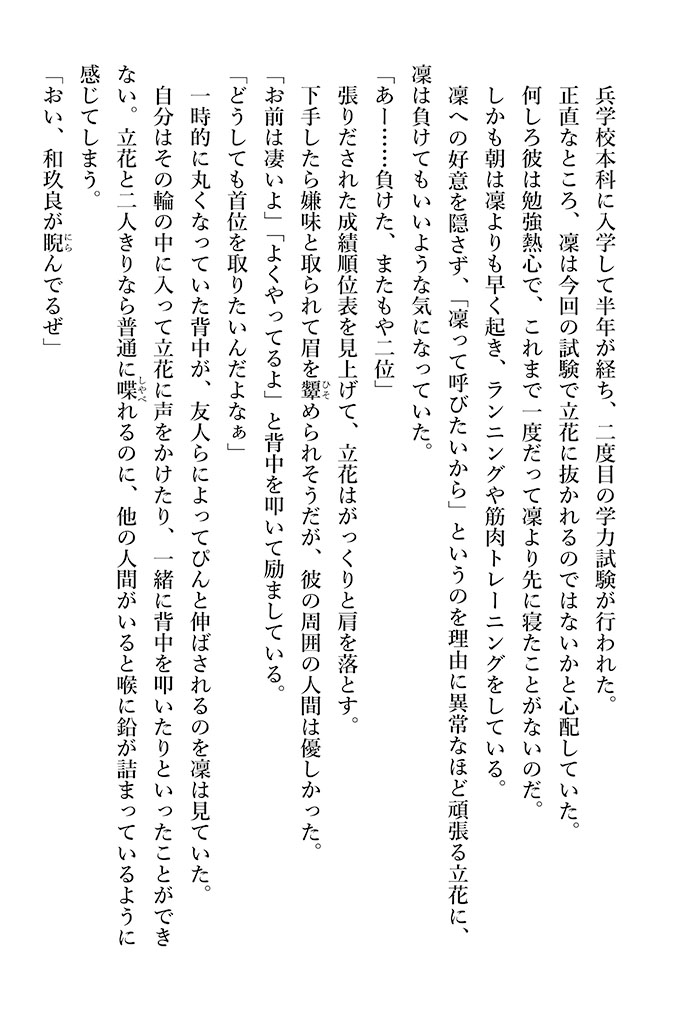 兵学校本科に入学して半年が経ち、二度目の学力試験が行われた。
正直なところ、凜は今回の試験で立花に抜かれるのではないかと心配していた。
何しろ彼は勉強熱心で、これまで一度だって凜より先に寝たことがないのだ。
しかも朝は凜よりも早く起き、ランニングや筋肉トレーニングをしている。
凜への好意を隠さず、「凜って呼びたいから」というのを理由に異常なほど頑張る立花に、
凜は負けてもいいような気になっていた。
「あー……負けた、またもや二位」
張りだされた成績順位表を見上げて、立花はがっくりと肩を落とす。
下手したら嫌味と取られて眉を顰められそうだが、彼の周囲の人間は優しかった。
「お前は凄いよ」「よくやってるよ」と背中を叩いて励ましている。
「どうしても首位を取りたいんだよなぁ」
一時的に丸くなっていた背中が、友人らによってぴんと伸ばされるのを凜は見ていた。
自分はその輪の中に入って立花に声をかけたり、一緒に背中を叩いたりといったことができ
ない。立花と二人きりなら普通に喋れるのに、他の人間がいると喉に鉛が詰まっているように
感じてしまう。
「おい、和玖良が睨んでるぜ」